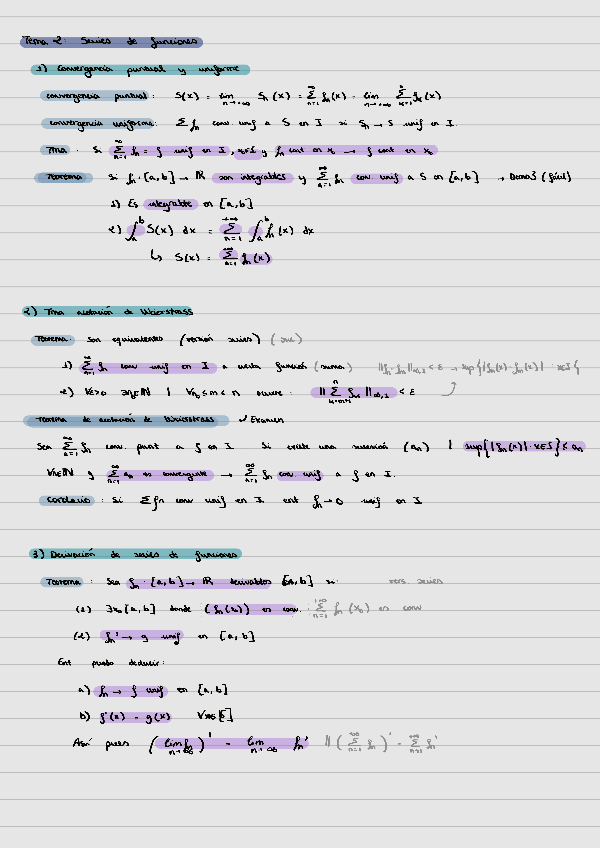 Tema 2: Series de funciones
1) Convergencia puntual y uniforme
Convergencia puntual: S(x) = lim n→+∞ Sn(x) = ∑ n=1 +∞ fn(x) = lim n→+∞ ∑ k=1 n fk(x)
Convergencia uniforme: ∑ fn conv. unif a S en I si Sn → S unif en I.
Tma: Si ∑ n=1 +∞ fn = f unif en I, x0∈I y fn cont en x0 → f cont en x0
Teorema Si fn: [a,b] → ℝ son integrables y ∑ n=1 +∞ fn conv unif a S en [a,b] → Dem (fácil)
1) Es integrable en [a,b]
2) ∫ a b S(x) dx = ∑ n=1 +∞ ∫ a b fn(x) dx
↳ S(x) = ∑ n=1 +∞ fn(x)
2) Tma acotación de Weierstrass
Teorema: Son equivalentes (versión series) (suc)
1) ∑ n=1 +∞ fn conv unif en I a cierta función (suma) ||fn-fm||∞,I < ε → sup{|fn(x)-fm(x)| : x∈I}
2) ∀ε>0 ∃n0∈ℕ | ∀n0≤m<n ocurre: ||∑ k=m+1 n fk||∞,I < ε
Teorema de acotación de Weierstrass ✓ Examen
Sea ∑ n=1 +∞ fn conv. punt a f en I. Si existe una sucesión (an) | sup{|fn(x)| : x∈I} ≤ an
∀n∈ℕ y ∑ n=1 +∞ an es convergente → ∑ n=1 +∞ fn conv unif a f en I.
Corolario: Si ∑fn conv unif en I ent fn→0 unif en I
3) Derivación de series de funciones
Teorema: Sea fn: [a,b] → ℝ derivables [a,b] si: vers. series
(1) ∃x0[a,b] donde (fn(x0)) es conv. ∑ n=1 +∞ fn(x0) es conv
(2) fn' → g unif en [a,b]
Ent puedo deducir:
a) fn → f unif en [a,b]
b) f'(x) = g(x)
Así pues (lim n→∞ fn)' = lim n→∞ fn' || (∑ n=1 +∞ fn)' = ∑ n=1 +∞ fn'